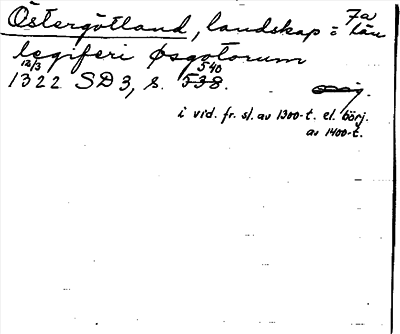 Östergötland, landskap o län 7a
legiferi øsgotorum
12/3 540
1322 SD 3, s. 538.
i vid. fr. sl. av 1300-t. el. börj.
av 1400-t.